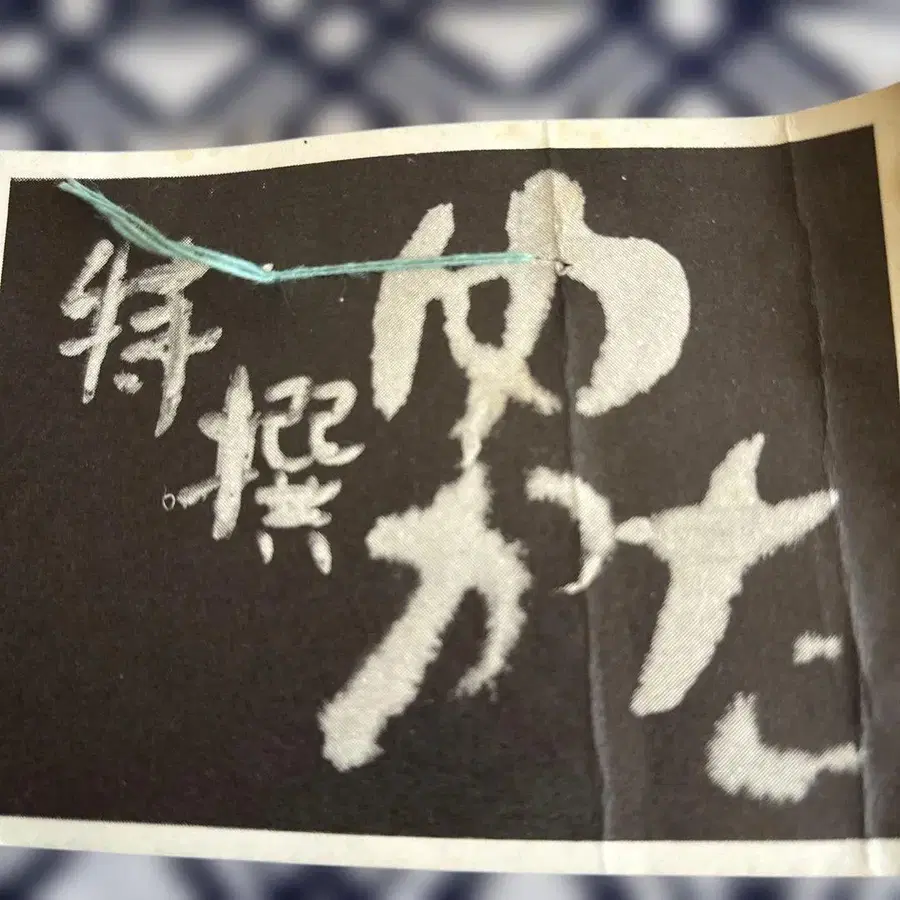 ゆかた
特撰